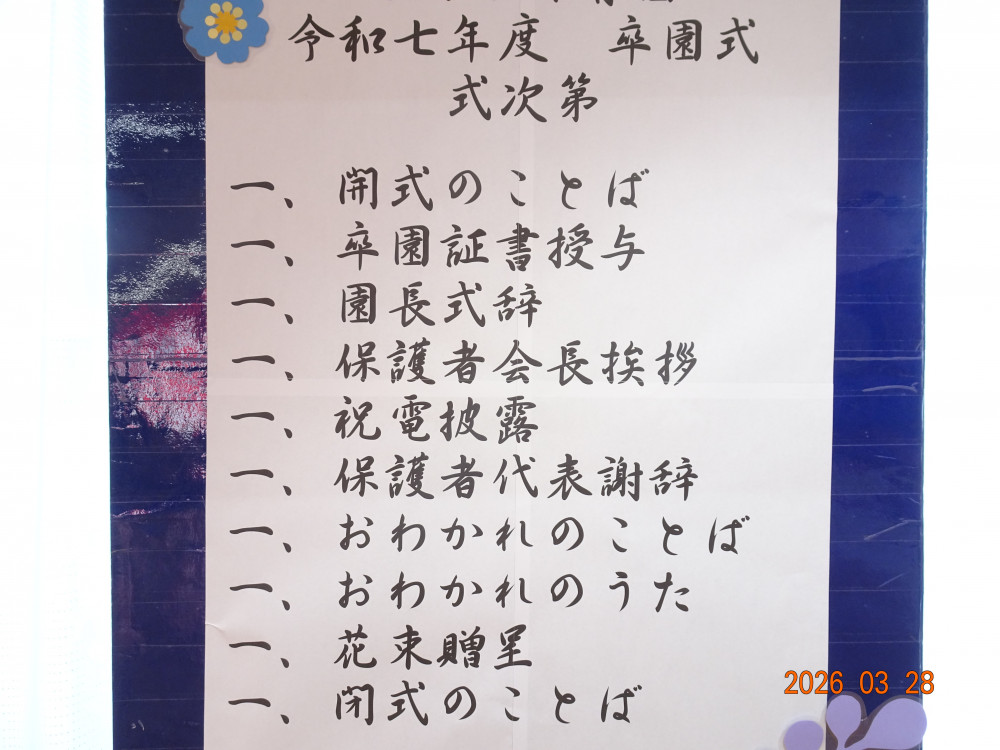 令和七年度　卒園式
式次第
一、開式のことば
一、卒園証書授与
一、園長式辞
一、保護者会長挨拶
一、祝電披露
一、保護者代表謝辞
一、おわかれのことば
一、おわかれのうた
一、花束贈呈
一、閉式のことば
2026 03 28